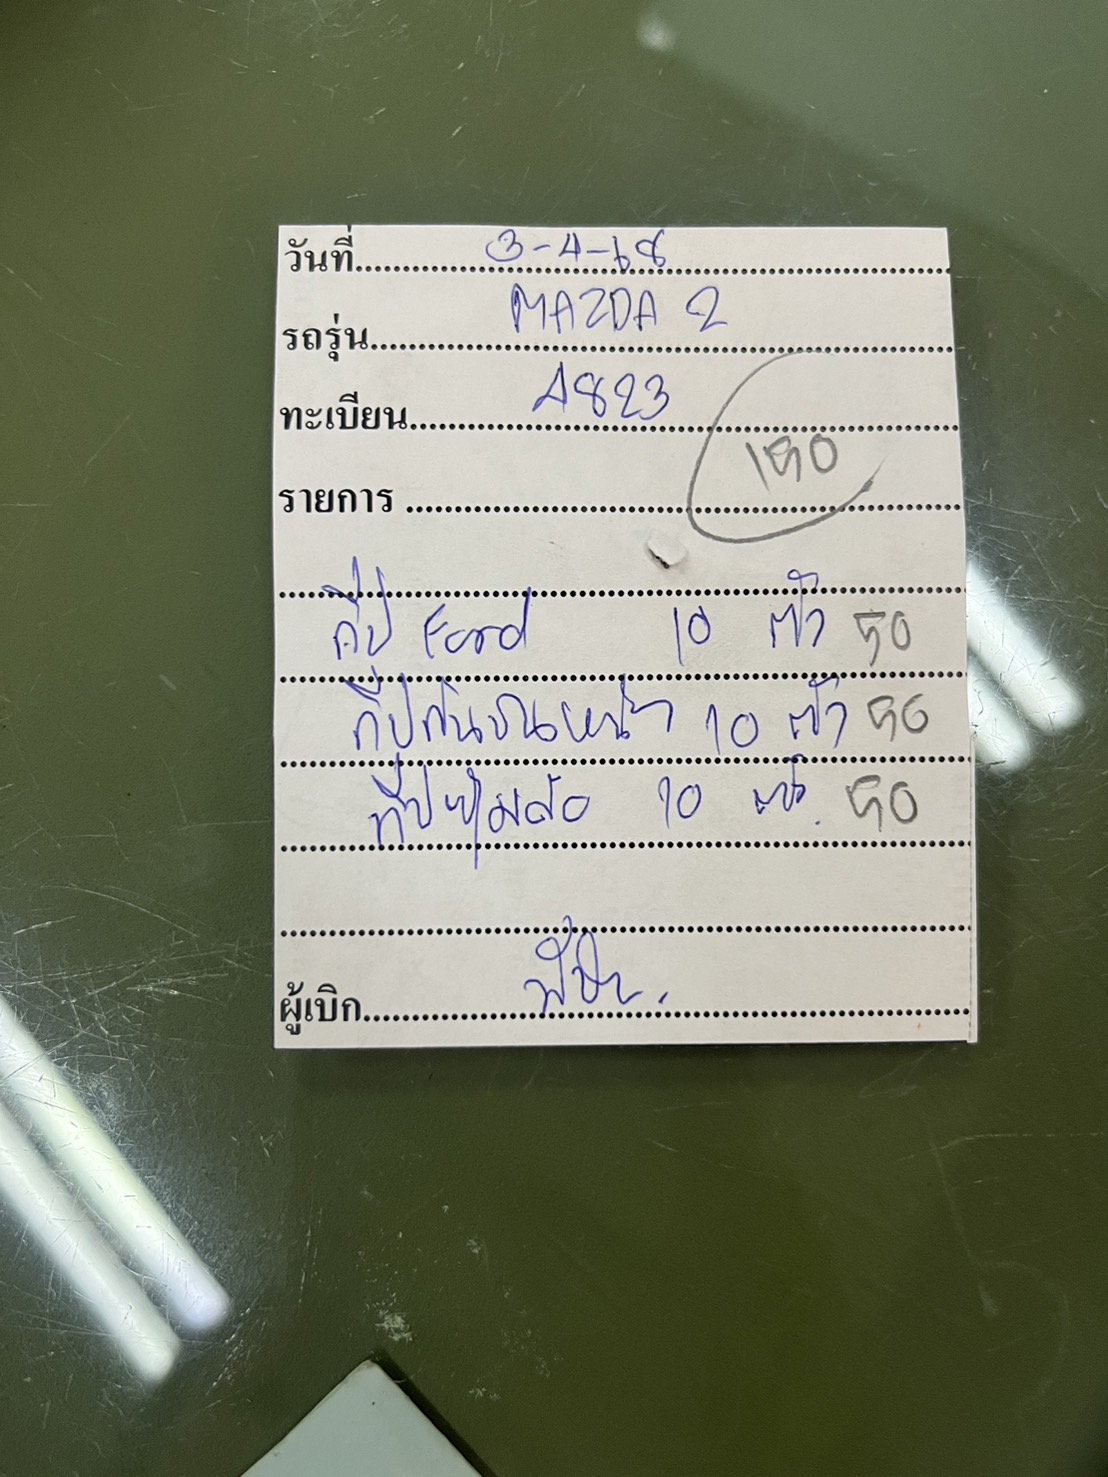 วันที่ 3-4-68
รถรุ่น MAZDA 2
ทะเบียน 4823
150
รายการ
กี๊ป Ford 10 ตัว 50
กี๊ปกันชนหน้า 10 ตัว 50
กี๊ปซุ้มล้อ 10 ตัว. 50
ผู้เบิก